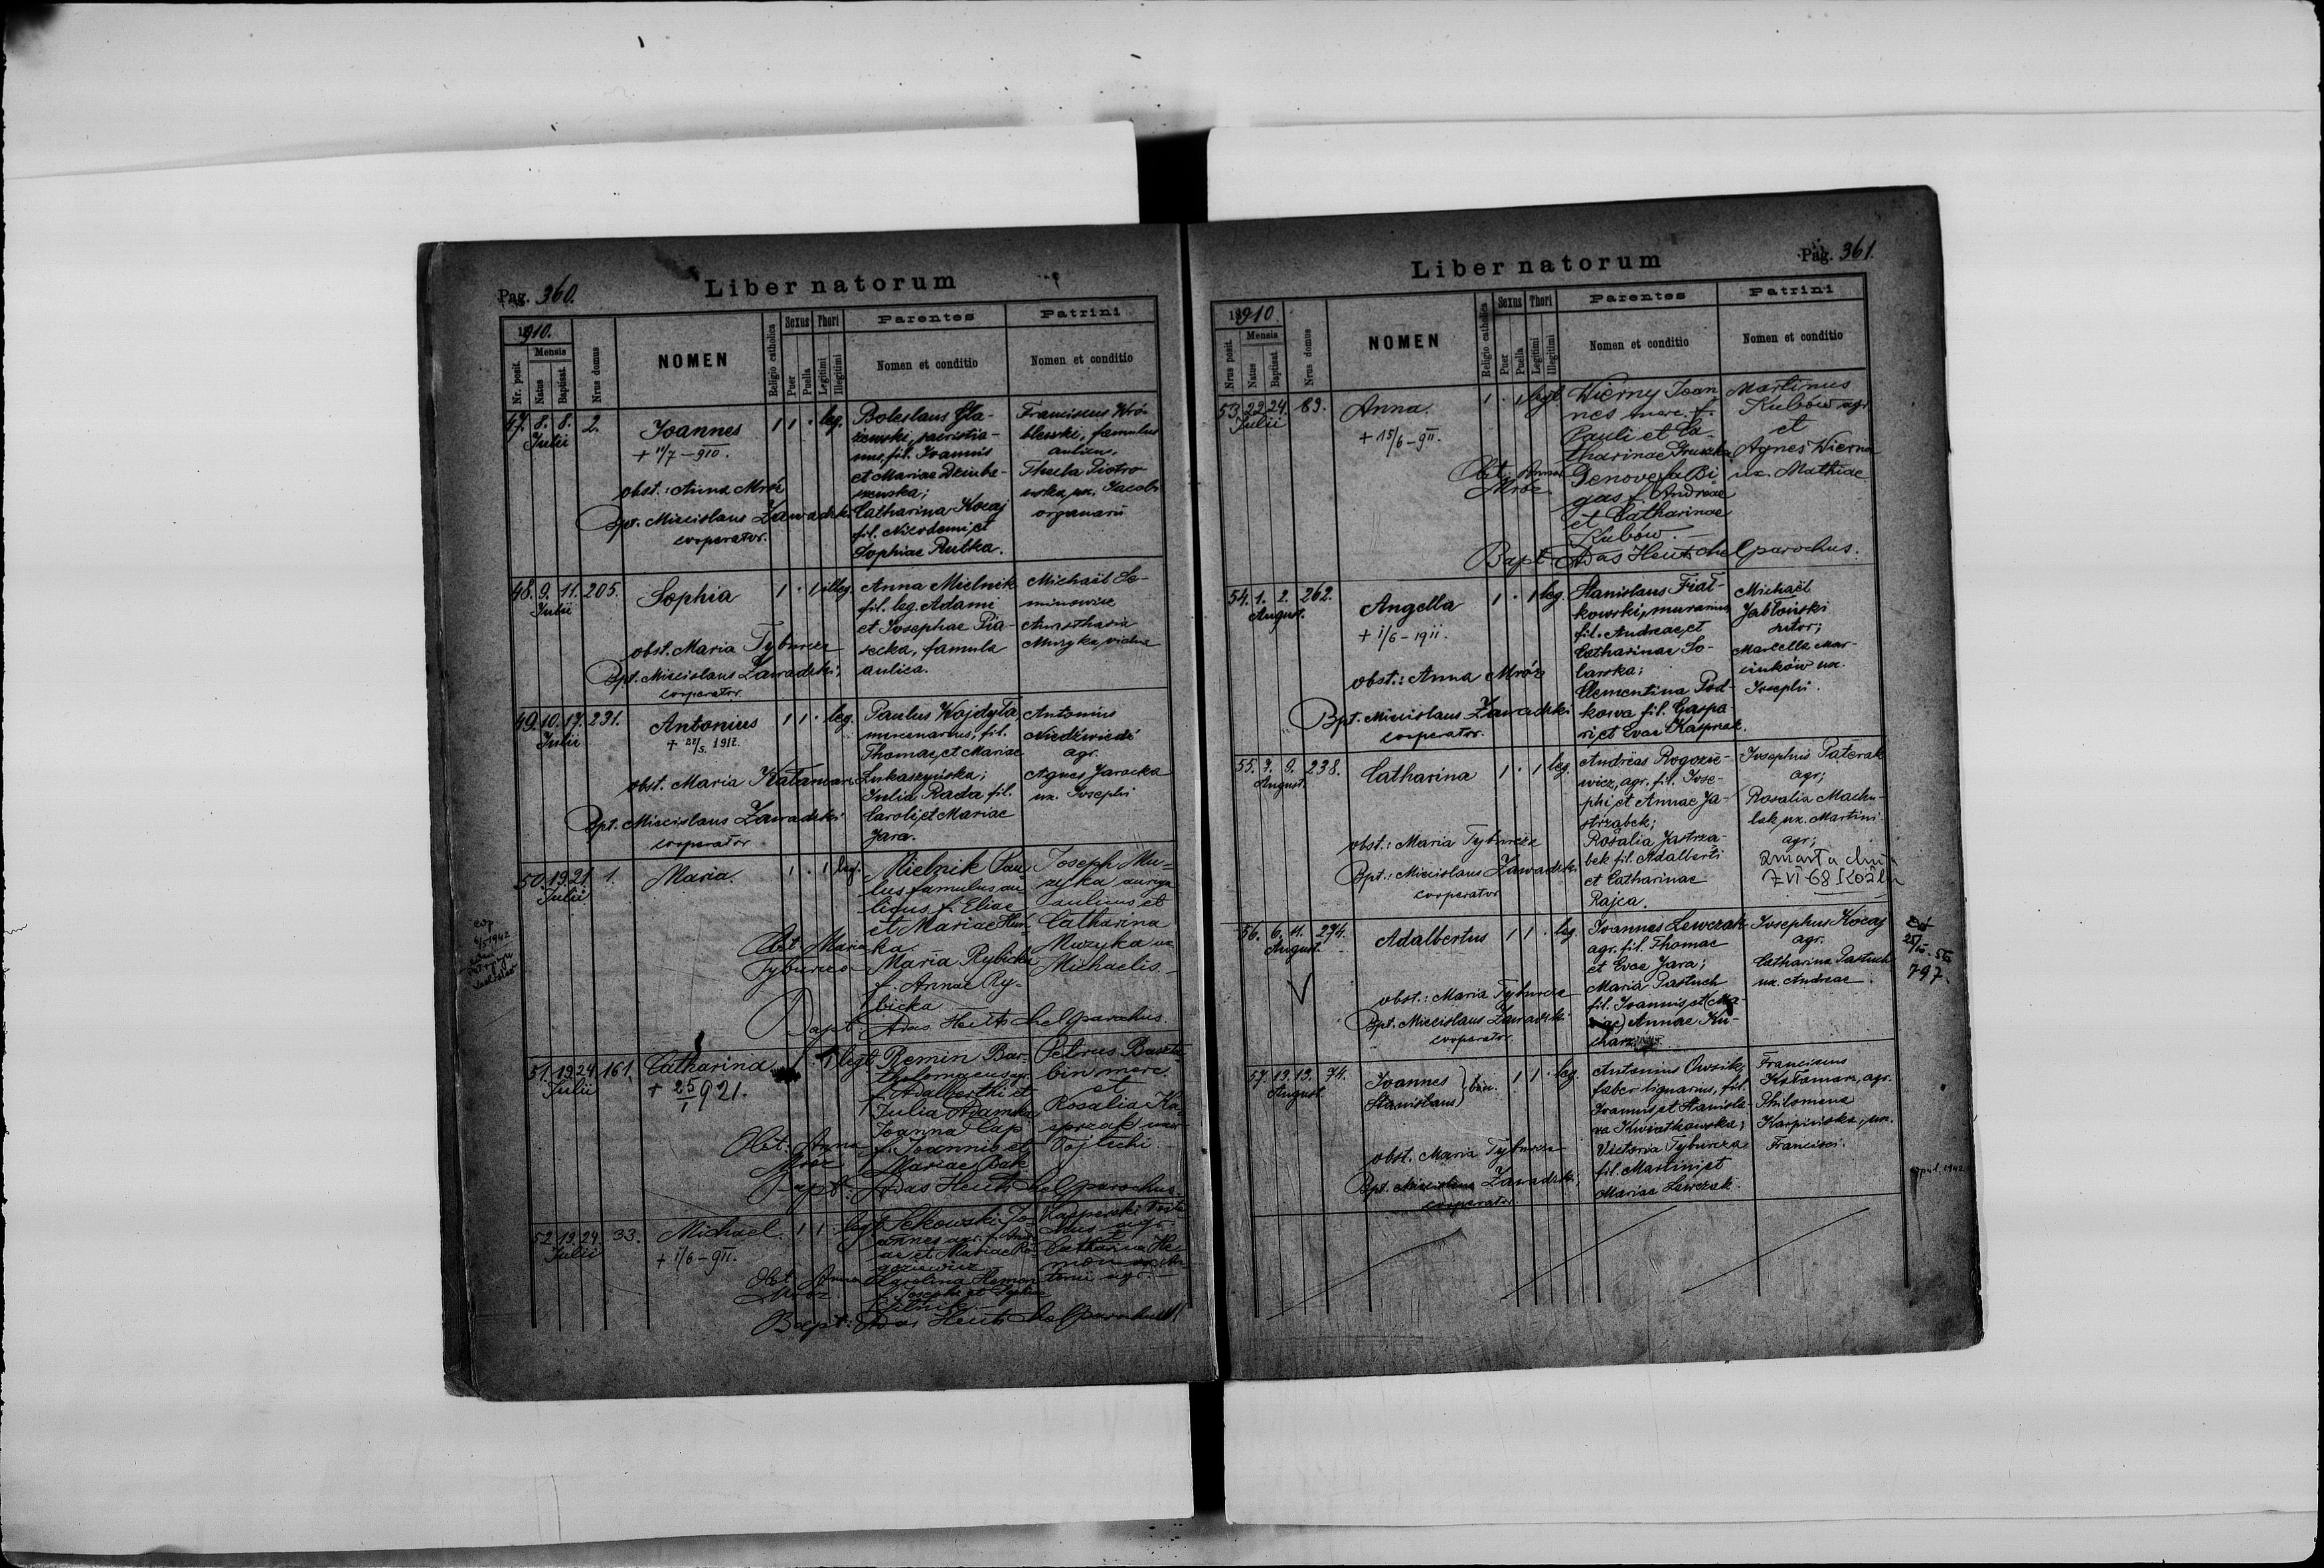 Pag. 360.
Liber natorum
1910.
Nr. posit.
Mensis
Natus
Baptisat.
Nrus domus
NOMEN
Religio catholica
Sexus
Puer
Puella
Thori
Legitimi
Illegitimi
Parentes
Nomen et conditio
Patrini
Nomen et conditio
47. 8. 8. 2.
Julii
Joannes
+ 11/7 - 910.
obst.: Anna Mróz
Bpt. Miecislaus Zawadzki
cooperator.
1 1 · leg.
Boleslaus
sacristia-
nus, fil. Joannis
et Mariae
Catharina Kocaj
fil. Nicodemi et
Sophiae Rutka.
Franciscus Wró-
blewski, famulus
aulicus.
Thecla Piotro-
wska, ux. Jacobi
organarii
48. 9. 11. 205.
Julii
Sophia
obst. Maria Tyburcza
Bpt. Miecislaus Zawadzki,
cooperator.
1 · 1 illeg.
Anna Mielnik
fil. leg. Adami
et Josephae Pia-
secka, famula
aulica.
Michaël
Anasthasia
Muzyka, vidua
49. 10. 17. 231.
Julii
Antonius
+ 22/5. 1912.
obst. Maria Kałamarz
Bpt. Miecislaus Zawadzki
cooperator
1 1 · leg.
Paulus Wojdyła,
mercenarius, fil.
Thomae, et Mariae
Łukaszyńska;
Julia Rada fil.
Caroli, et Mariae
Jara.
Antonius
Niedźwiedź
agr.
Agnes Jarocka
ux. Josephi
50. 19. 21. 1.
Julii
Maria.
Obt. Maria
Tyburcza
1 · 1 leg.
Mielnik Pau-
lus famulus au-
licus f. Eliae
et Mariae
Maria Rybicka
f. Annae Ry-
bicka
Bapt. Adas Heutschel parochus.
Joseph Mu-
zyka auriga
aulicus et
Catharina
Muzyka ux
Michaelis.
51. 19. 24. 161.
Julii
Catharina
+ 25/1 921.
Obt. Anna
Mróz
1 · 1 legt.
Remin Bar-
tholomaeus agr.
f. Adalberthi et
Julia Adamska
Joanna Cap
f. Joannis et
Mariae Bak
Bapt. Adas Heutschel parochus.
Petrus
merc.
et
Rosalia Ka-
sprzak uxor
Vojtechi
52. 19. 24. 33.
Julii
Michael.
+ 1/6 - 911.
Obt. Anna
Mróz.
1 1 · legt.
Jo-
annes agr. f.
et Mariae Ro-
goziewicz
Karolina Hemon
f. Josephi et Sophiae
Bapt: Adas Heutschel parochus
agr.
et
Catharina He-
mon ux
agr.
Pag. 361.
Liber natorum
1910.
Nrus posit.
Mensis
Natus
Baptisat.
Nrus domus
NOMEN
Religio catholica
Sexus
Puer
Puella
Thori
Legitimi
Illegitimi
Parentes
Nomen et conditio
Patrini
Nomen et conditio
53. 22. 24. 89.
Julii
Anna.
+ 15/6 - 911.
Obt: Anna
Mróz
1 · 1 legt.
Wierny Joan-
nes merc. f.
Pauli et Ca-
tharinae Gruszka
Genovefa Bi-
gas f. Andreae
et Catharinae
Kubów.
Bapt Adas Heutschel parochus.
Martinus
Kubów agr
et
Agnes Wierna
ux. Mathiae
54. 1. 2. 262.
August.
Angella
+ 1/6 - 1911.
obst.: Anna Mróz
Bpt. Miecislaus Zawadzki
cooperator.
1 · 1 leg.
Stanislaus Fiał-
kowski, murarius,
fil. Andreae, et
Catharinae So-
larska;
Clementina Pod-
kowa fil. Gaspa-
ri, et Evae Kasprzak.
Michaël
Jabłoński
sutor;
Marcella Mar-
cinków ux.
Josephi.
55. 7. 9. 238.
August.
Catharina
obst.: Maria Tyburcza
Bpt.: Miecislaus Zawadzki
cooperator
1 · 1 leg.
Andreas Rogozie-
wicz, agr. fil. Jose-
phi, et Annae Ja-
strząbek;
Rosalia Jastrzą-
bek fil. Adalberti
et Catharinae
Rajca.
Josephus Paterak
agr;
Rosalia Machu-
lak, ux. Martini
agr;
zmarła dnia
7 VI 68 Koźle
56. 6. 11. 274.
August.
Adalbertus
obst.: Maria Tyburcza
Bpt. Miecislaus Zawadzki
cooperator.
1 1 · leg.
Joannes Lewczak
agr. fil. Thomae
et Evae Jara;
Maria Pastuch
fil. Joannis, et (Ma-
riae) Annae Ku-
charz
Josephus Kocaj
agr.
Catharina Pastuch
ux. Andreae.
797.
57. 13. 13. 74.
August.
Joannes
Stanislaus } bin.
obst. Maria Tyburcza
Bpt. Miecislaus Zawadzki,
cooperator.
1 1 · leg.
Antonius Owsik,
faber lignarius, fil.
Joannis et Stanisla-
va Kwiatkowska;
Victoria Tyburcza
fil. Martini, et
Mariae Lewczak.
Franciscus
Kałamarz, agr.
Philomena
Karpińska, ux.
Francisci.